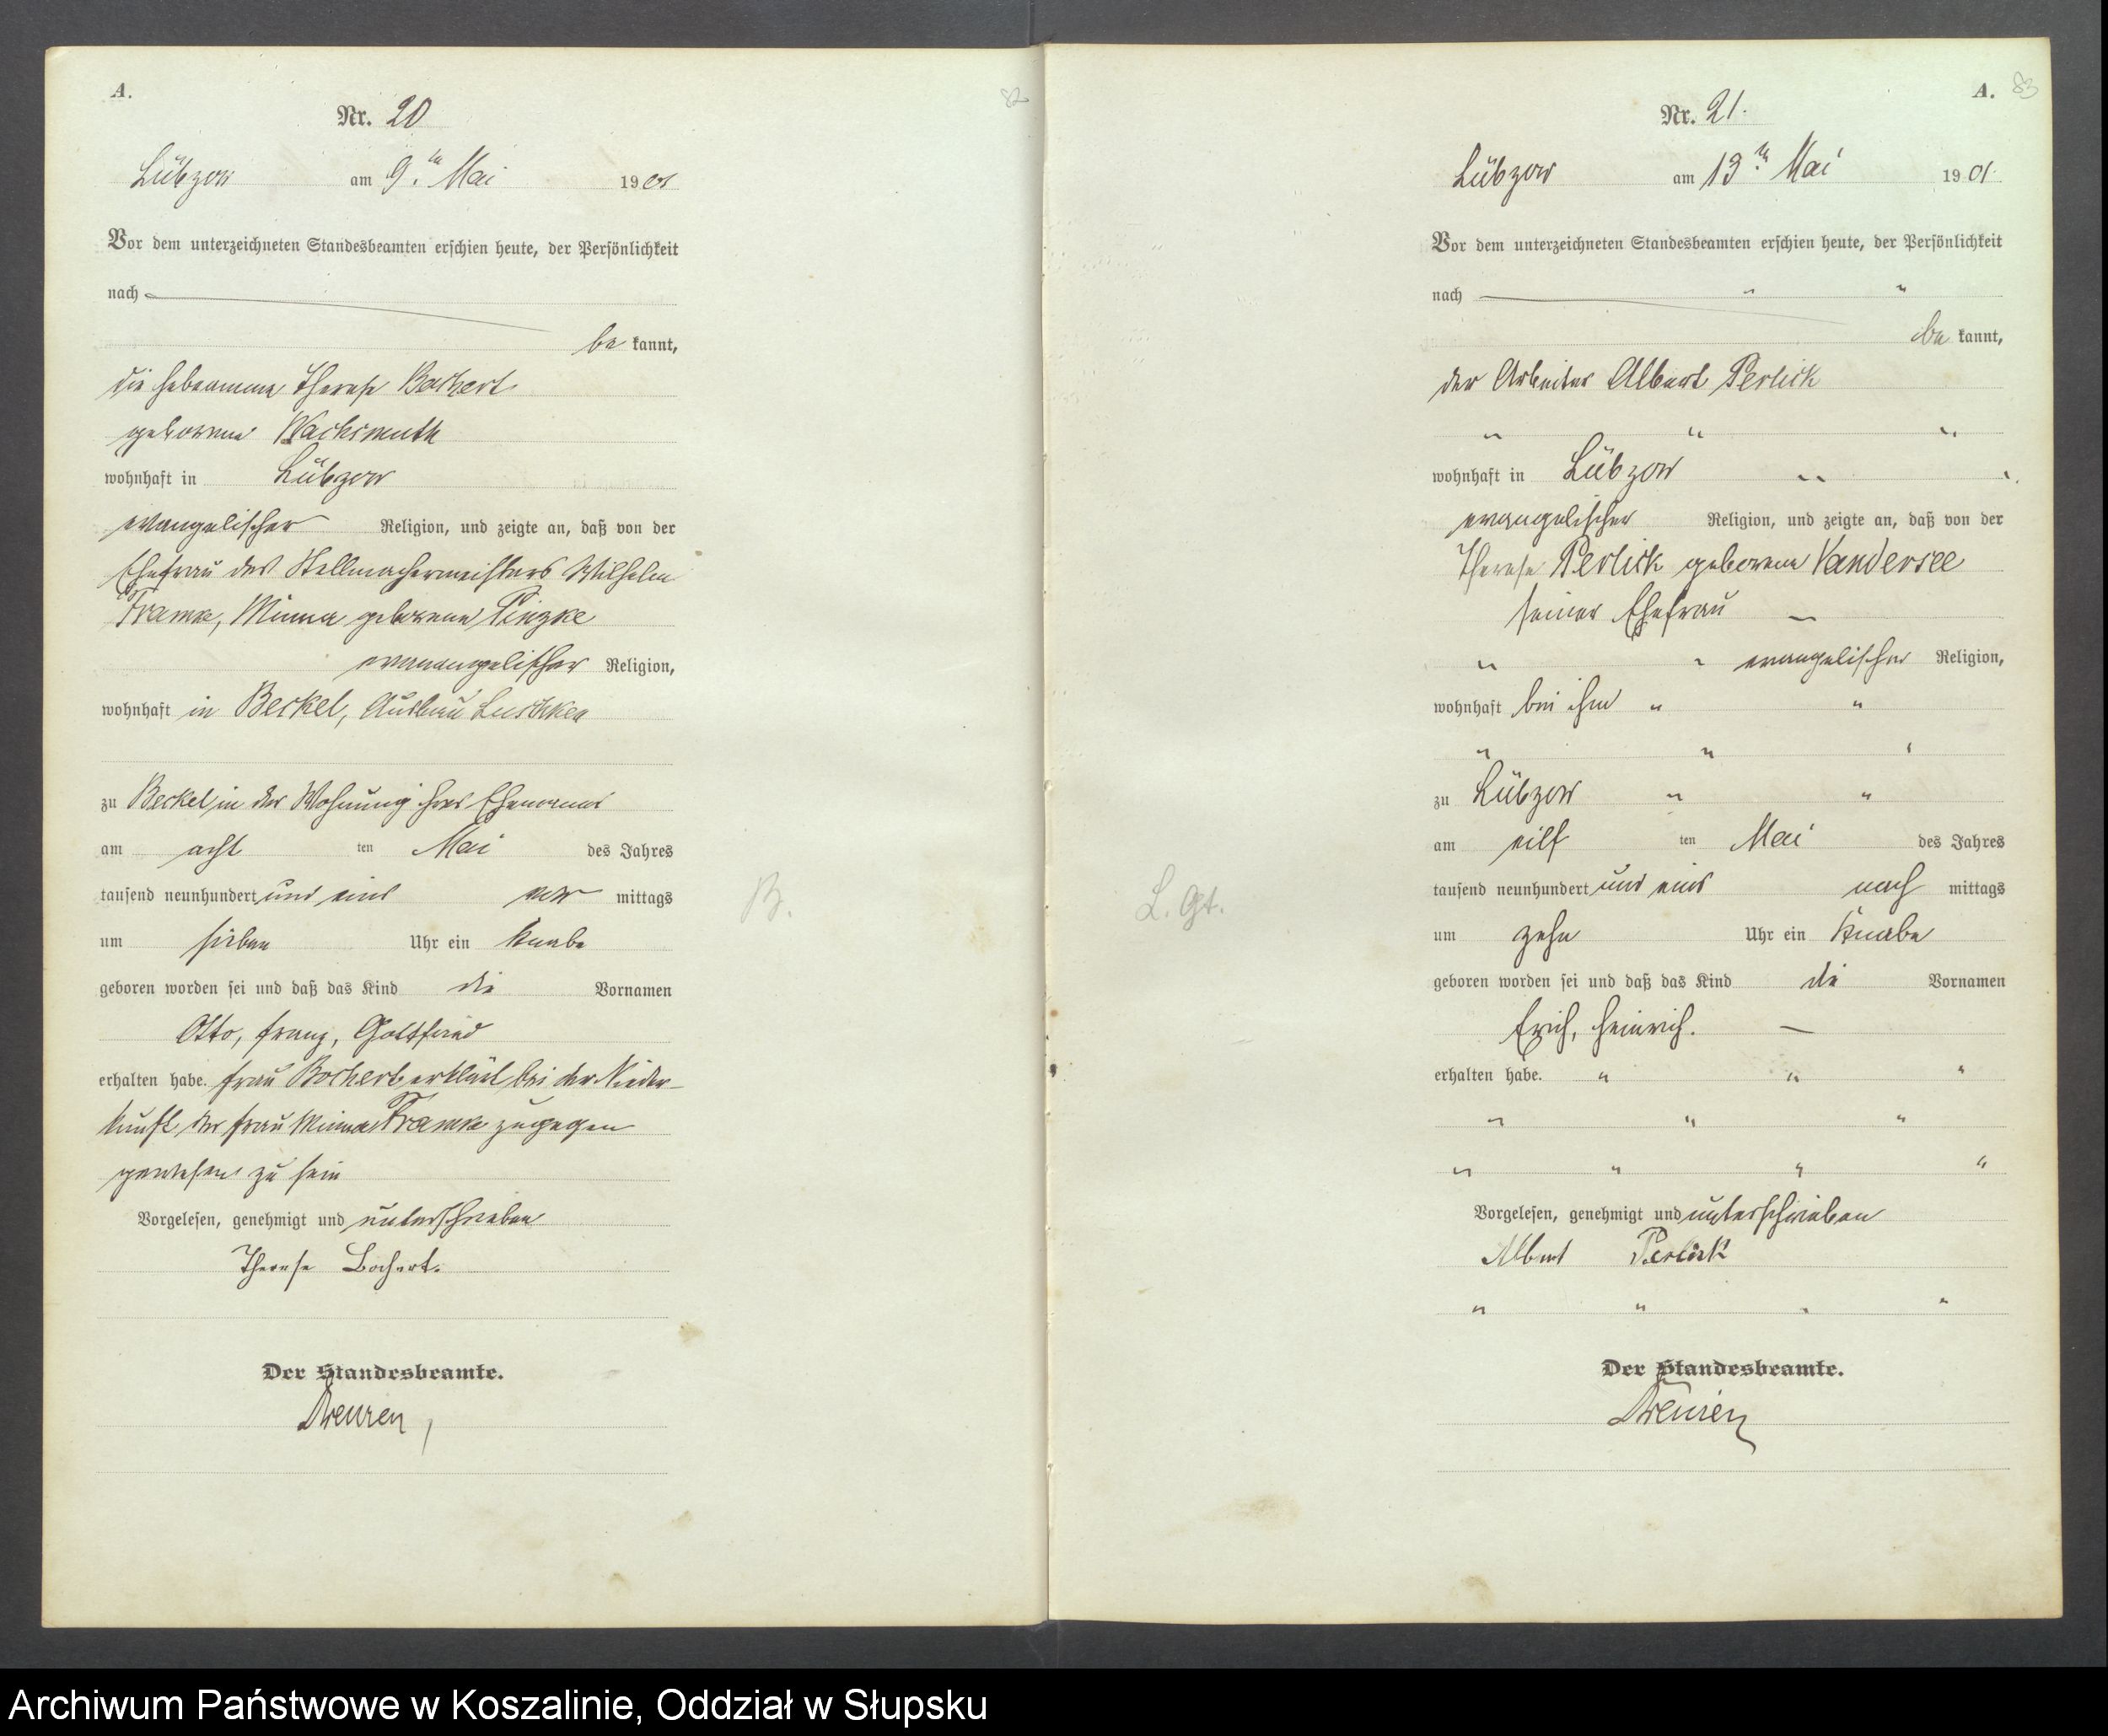 A.
82
Nr. 20
Lübzow am 9ten Mai 1901
Vor dem unterzeichneten Standesbeamten erschien heute, der Persönlichkeit
nach
be kannt,
die Hebeamme Therese Bochert
geborene Wachsmuth
wohnhaft in Lübzow
evangelischer Religion, und zeigte an, daß von der
Ehefrau des Stellmachermeisters Wilhelm
Framke, Minna geborene Pinzke
evanangelischer Religion,
wohnhaft in Beckel, Ausbau
zu Beckel in der Wohnung ihres Ehemanns
am acht ten Mai des Jahres
tausend neunhundert und eins vor mittags
um sieben Uhr ein Knabe
geboren worden sei und daß das Kind die Vornamen
Otto, Franz, Gottfried
erhalten habe. Frau Bochert erklärt bei der Nieder-
kunft der Frau Minna Framke zugegen
gewesen zu sein
Vorgelesen, genehmigt und unterschrieben
Therese Bochert.
Der Standesbeamte.
B.
A. 83
Nr. 21.
Lübzow am 13ten Mai 1901.
Vor dem unterzeichneten Standesbeamten erschien heute, der Persönlichkeit
nach " "
be kannt,
der Arbeiter Albert Perlick
" " "
wohnhaft in Lübzow " "
evangelischer Religion, und zeigte an, daß von der
Therese Perlick geborene Vandersee
seiner Ehefrau —
" " evangelischer Religion,
wohnhaft bei ihm " "
" " "
zu Lübzow " "
am eilf ten Mai des Jahres
tausend neunhundert und eins nach mittags
um zehn Uhr ein Knabe
geboren worden sei und daß das Kind die Vornamen
Erich, Heinrich. —
erhalten habe. " " "
" " "
" " " "
Vorgelesen, genehmigt und unterschrieben
Albert Perlick
" " " "
Der Standesbeamte.
L. Gt.
Archiwum Państwowe w Koszalinie, Oddział w Słupsku